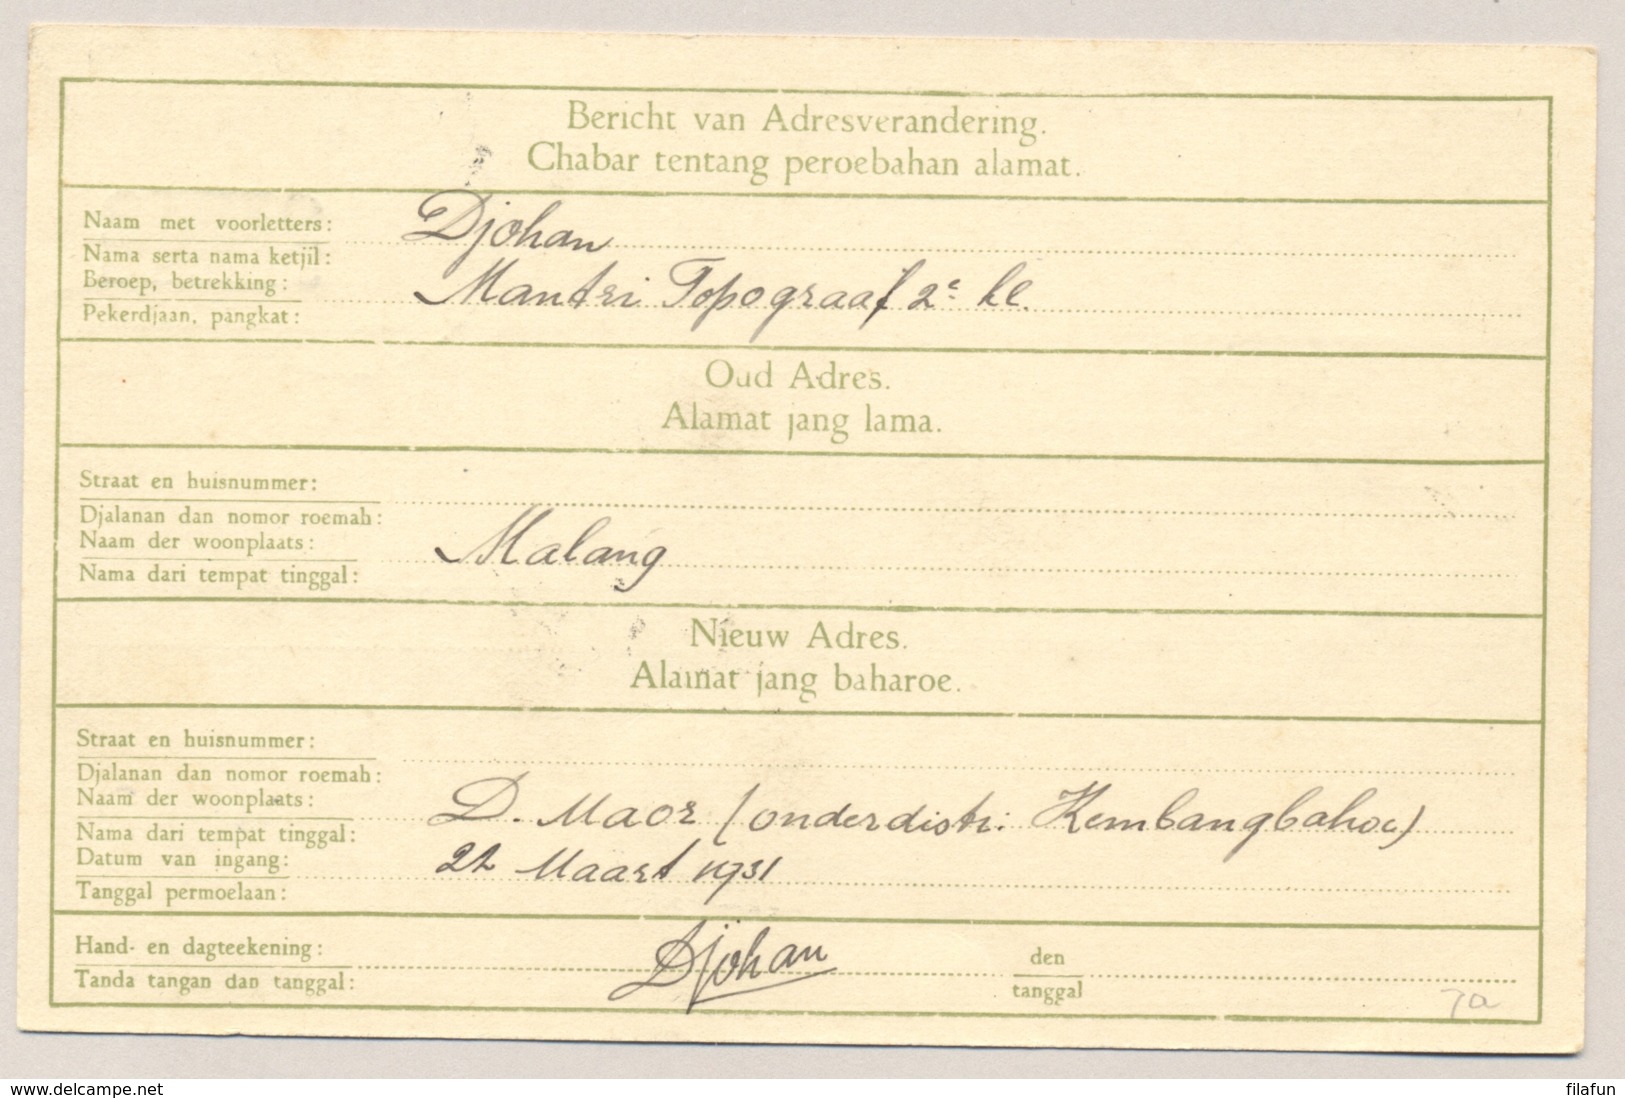 Bericht van Adresverandering.
Chabar tentang peroebahan alamat.
Naam met voorletters:
Nama serta nama ketjil:
Djohan
Beroep, betrekking:
Pekerdjaan, pangkat:
Mantri Topograaf 2e kl.
Oud Adres.
Alamat jang lama.
Straat en huisnummer:
Djalanan dan nomor roemah:
Naam der woonplaats:
Nama dari tempat tinggal:
Malang
Nieuw Adres.
Alamat jang baharoe.
Straat en huisnummer:
Djalanan dan nomor roemah:
Naam der woonplaats:
Nama dari tempat tinggal:
D. Maor (onderdistr: Kembangbahoe)
Datum van ingang:
Tanggal permoelaan:
Maart 1931
Hand- en dagteekening:
Tanda tangan dan tanggal:
Djohan
den
tanggal
7a
delcampe.net
filafun